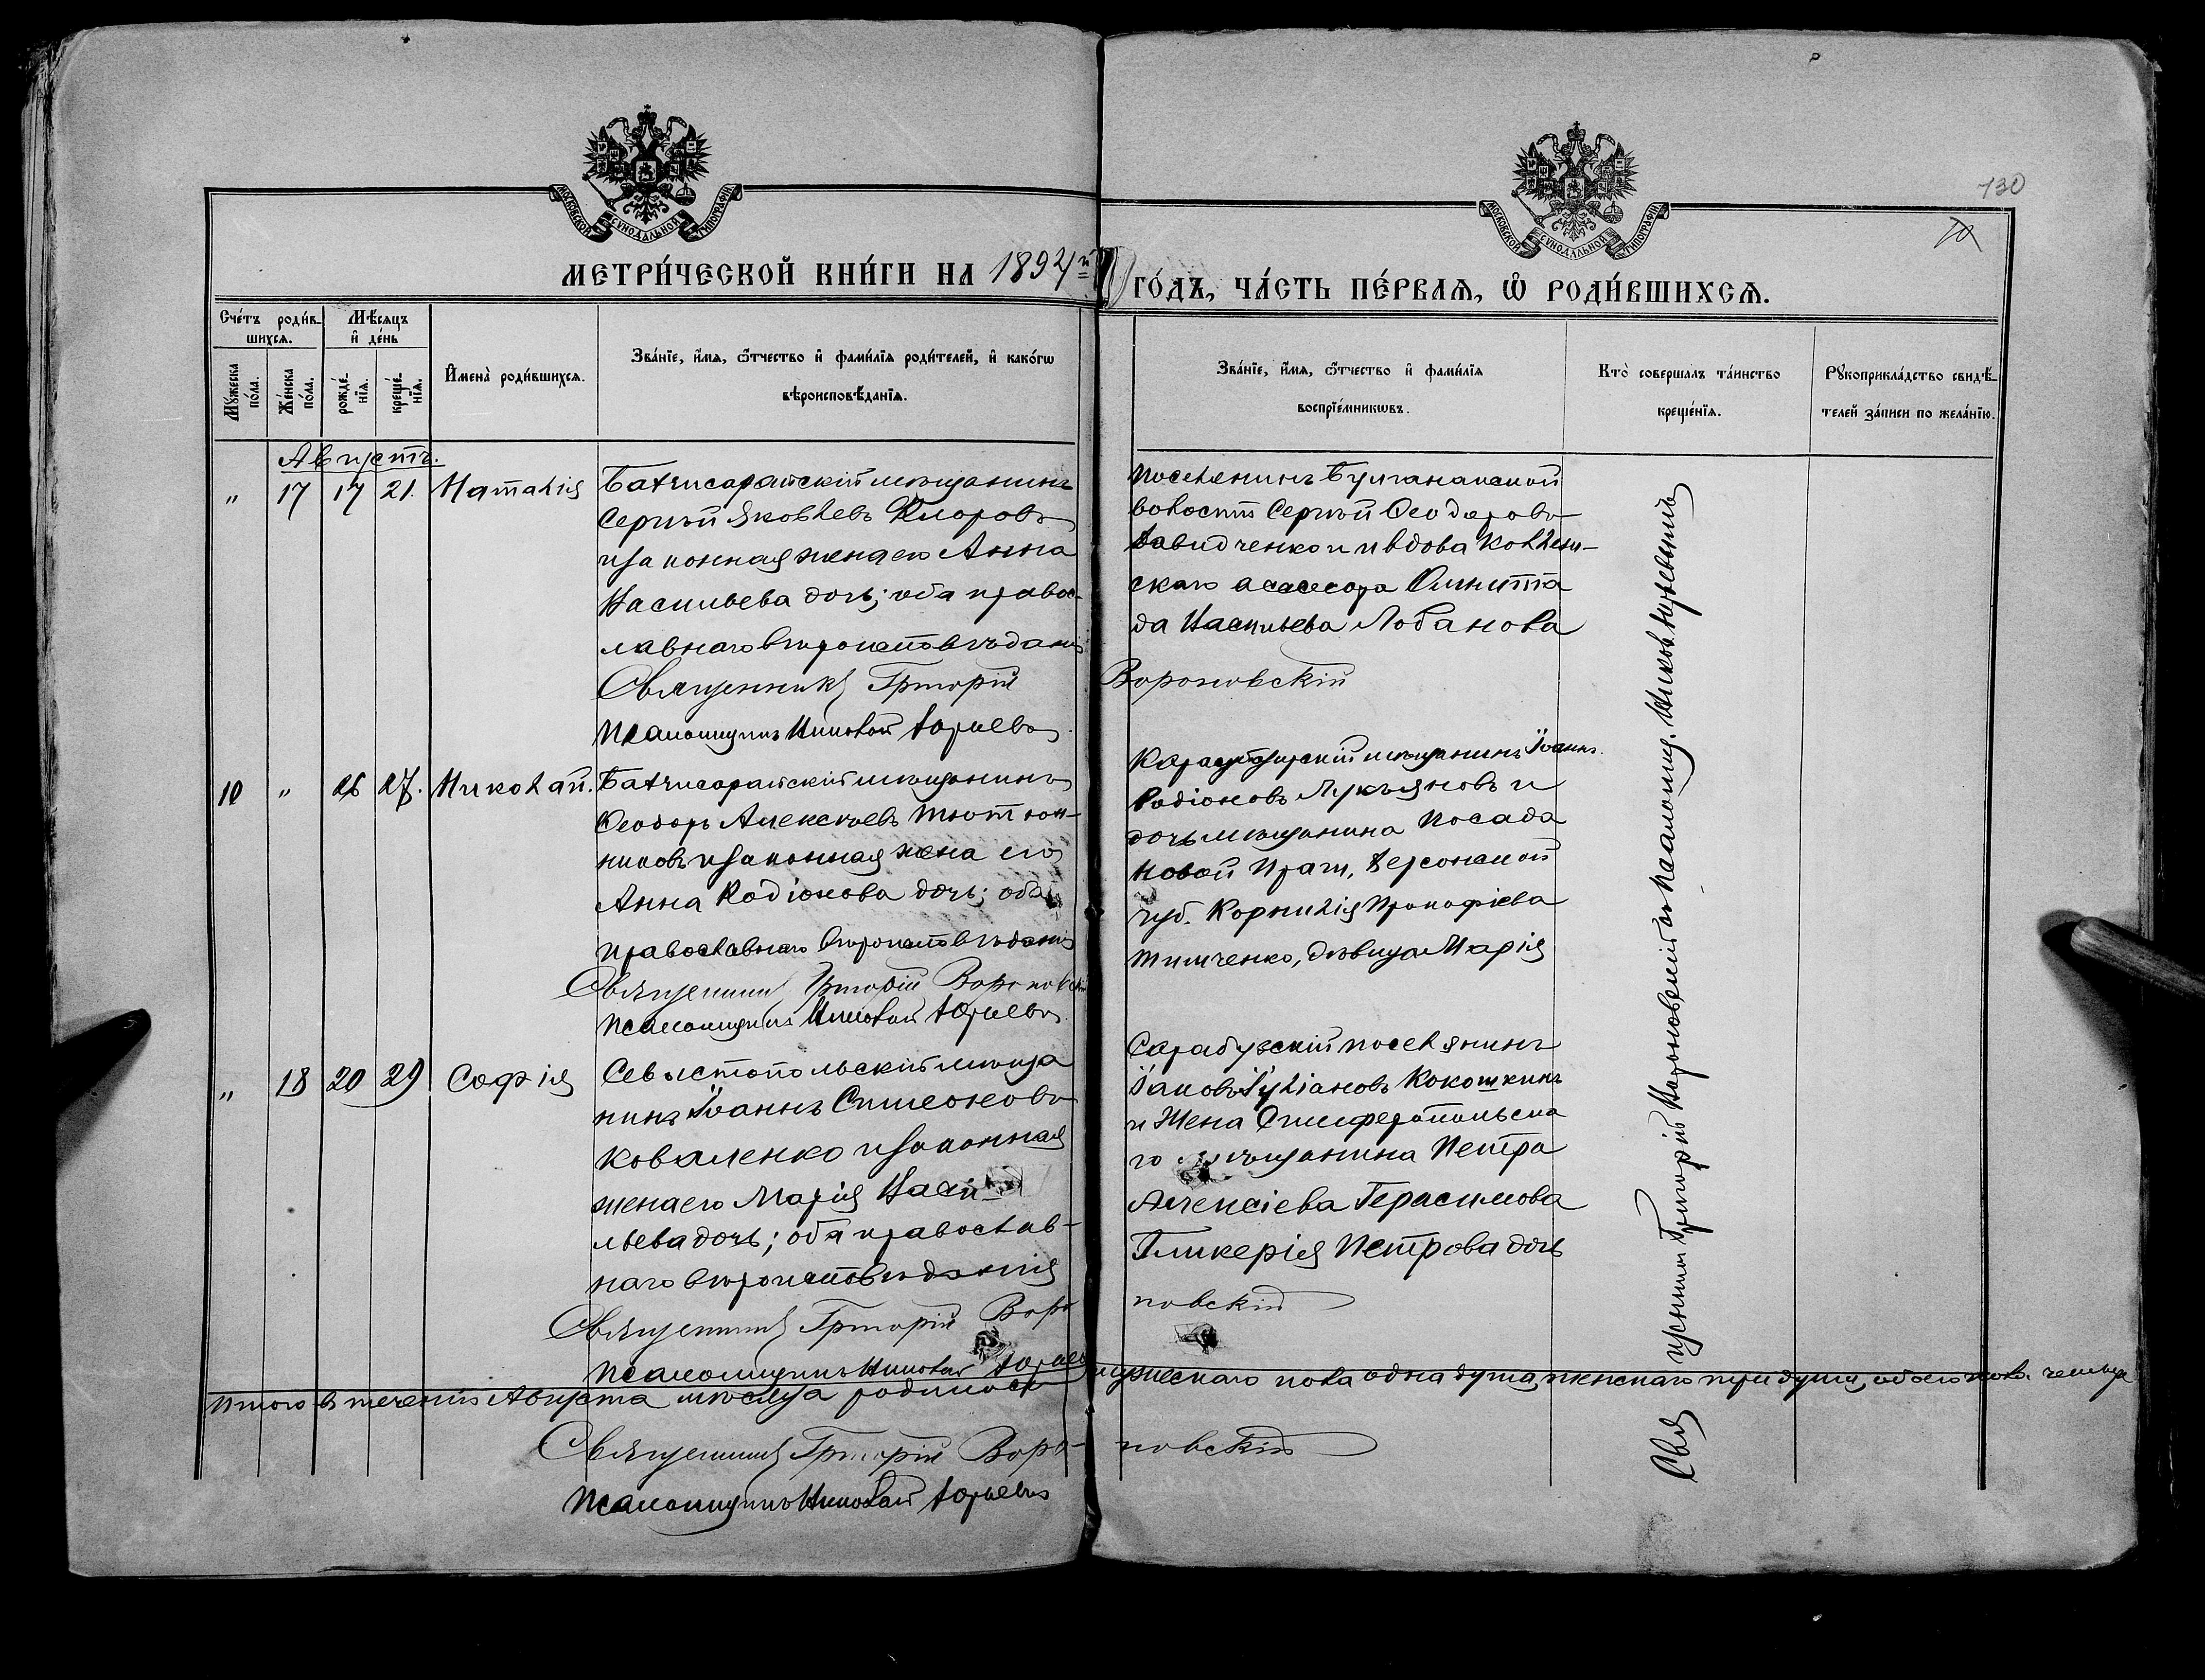 130
70
МОСКОВСКОЙ СУНОДАЛЬНОЙ ТИПОГРАФІИ
МОСКОВСКОЙ СУНОДАЛЬНОЙ ТИПОГРАФІИ
МЕТРИ́ЧЕСКОЙ КНИ́ГИ НА 1894й ГО́ДЪ, ЧА́СТЬ ПЕ́РВАЯ, Ѡ РОДИ́ВШИХСЯ.
Сче́тъ роди́в-
шихся.
Мѣ́сяцъ
и де́нь
Му́жеска по́ла.
Же́нска по́ла.
рожде́-
нія.
креще́-
нія.
Имена̀ роди́вшихся.
Зва́нїе, и́мя, ѻ́тчество и фами́лїя роди́телей, и како́гѡ
вѣроисповѣ́данїя.
Зва́нїе, и́мя, ѻ́тчество и фами́лїя
воспрїе́мникѡвъ.
Кто̀ соверша́лъ та́инство
креще́нїя.
Рукоприкла́дство свидѣ́-
телей за́писи по жела́нїю.
Августъ.
" 17 17 21. Наталія
Бахчисарайскій мѣщанинъ
Сергѣй Яковлевъ
и законная жена его Анна
Васильева дочь; оба правос-
лавнаго вѣроисповѣданія
Священникъ Григорій Вороновскій
Псаломщикъ Николай Юрьевъ
Поселянинъ Булганакской
волости Сергѣй Ѳеодоровъ
Давидченко и вдова коллеж-
скаго ассесора Олимпіа
да Васильева Лобанова
10 " 26 27. Николай.
Бахчисарайскій мѣщанинъ
Ѳеодоръ Алексѣевъ Тютюн-
никовъ и законная жена его
Анна Родіонова дочь; оба
православнаго вѣроисповѣданія
Священникъ Григорій Вороновскій
Псаломщикъ Николай Юрьевъ
Карасубазарскій мѣщанинъ Іоаннъ
Родіоновъ Лукьяновъ и
дочь мѣщанина посада
Новой Праги, Херсонской
губ. Корнилія Прокофіева
Тимченко, дѣвица Марія
" 18 20 29 Софія
Севастопольскій мѣща
нинъ Іоаннъ Симеоновъ
Коваленко и законная
жена его Марія Васи-
льева дочь; оба православ-
наго вѣроисповѣданія
Священникъ Григорій Вороновскій
Псаломщикъ Николай Юрьевъ
Сарабузскій поселянинъ
Іаковъ Іуліановъ Кокошкинъ
и жена Симферопольска
го мѣщанина Петра
Алексіева Герасимова
Гликерія Петрова дочь
Итого въ теченіи Августа мѣсяца родилось мужескаго пола одна душа, женскаго три души, обоего пола четыре
Священникъ Григорій Вороновскій
Псаломщикъ Николай Юрьевъ
Священникъ Григорій Вороновскій съ псаломщ. Никол. Юрьевымъ